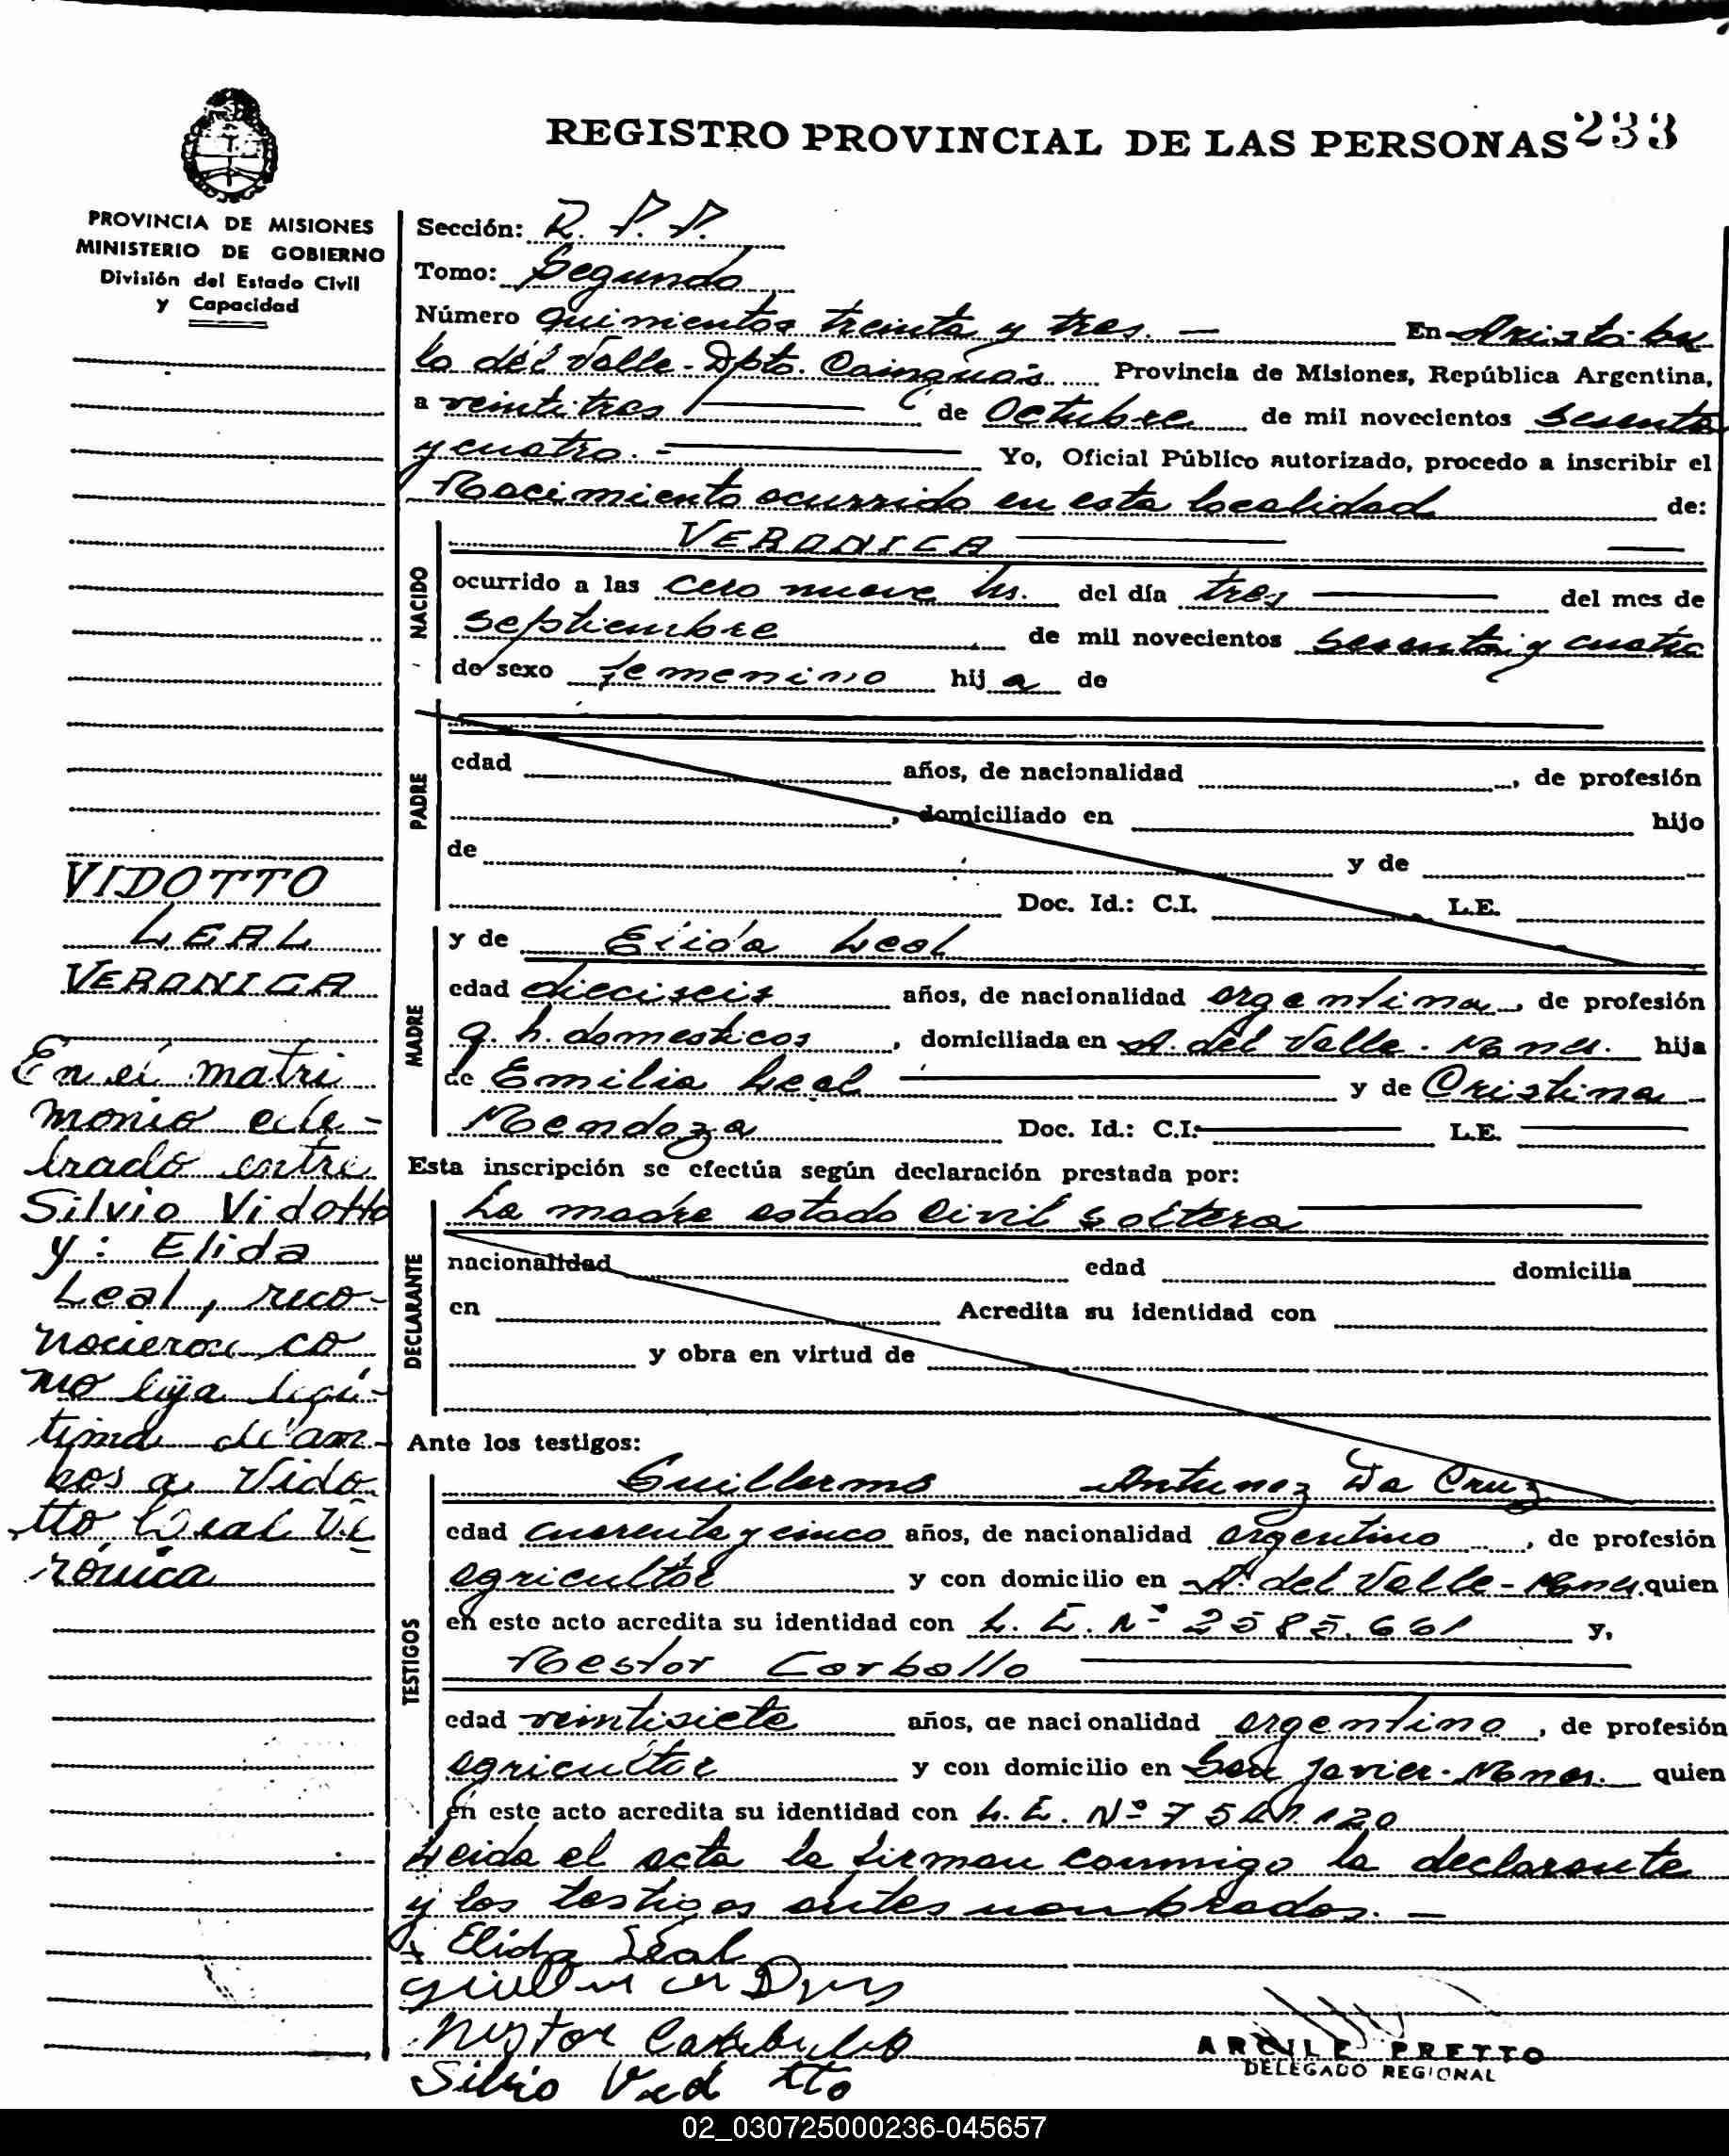 REGISTRO PROVINCIAL DE LAS PERSONAS 233
PROVINCIA DE MISIONES
MINISTERIO DE GOBIERNO
División del Estado Civil
y Capacidad
VIDOTTO
LEAL
VERONICA
En el matri
monio cele-
brado entre
Silvio Vidotto
y: Elida
Leal, reco-
nocieron co
mo hija legí-
tima de am-
bos a Vido
tto Leal Ve
rónica
Sección: R. P. P.
Tomo: Segundo
Número quinientos treinta y tres. — En Aristóbu
lo del Valle - Dpto. Cainguás Provincia de Misiones, República Argentina,
a veintitres — de Octubre de mil novecientos sesenta
y cuatro. — Yo, Oficial Público autorizado, procedo a inscribir el
Nacimiento ocurrido en esta localidad de:
NACIDO
VERONICA —
ocurrido a las cero nueve hs. del día tres — del mes de
septiembre de mil novecientos sesenta y cuatro
de sexo femenino hija de
PADRE
edad años, de nacionalidad , de profesión
, domiciliado en hijo
de y de
Doc. Id.: C.I. L.E.
MADRE
y de Elida Leal
edad dieciseis años, de nacionalidad argentina, de profesión
q. h. domesticos, domiciliada en A. del Valle - Mnes. hija
de Emilio Leal — y de Cristina
Mendoza Doc. Id.: C.I. — L.E. —
Esta inscripción se efectúa según declaración prestada por:
DECLARANTE
La madre estado civil soltera —
nacionalidad edad domicilia
en Acredita su identidad con
y obra en virtud de
Ante los testigos:
TESTIGOS
Guillermo Antunez Da Cruz
edad cuarenta y cinco años, de nacionalidad argentino, de profesión
agricultor y con domicilio en A. del Valle - Mnes. quien
en este acto acredita su identidad con L. E. Nº 2585.661 y,
Nestor Carballo —
edad veintisiete años, de nacionalidad argentino, de profesión
agricultor y con domicilio en San Javier - Mnes. quien
en este acto acredita su identidad con L. E. Nº
Leida el acta la firman conmigo la declarante
y los testigos antes nombrados. —
Elida Leal
Nestor
Silvio
ARCILE PRETTO
DELEGADO REGIONAL
02_030725000236-045657